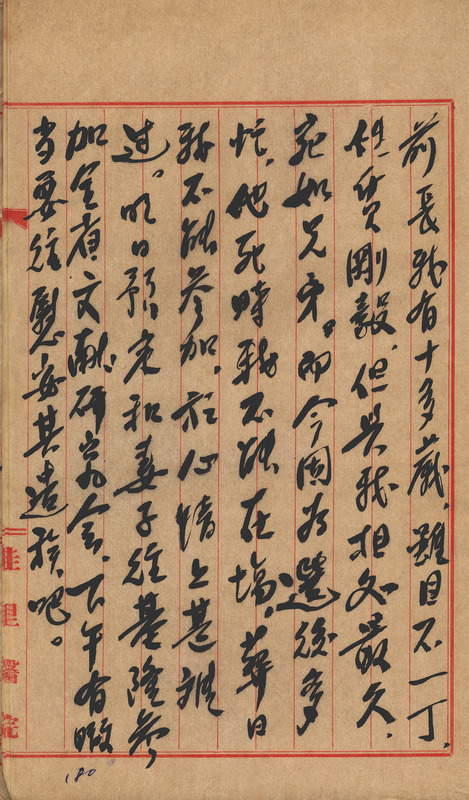 前長我有十多歲，雖目不一丁，
性質剛毅，但與我相知最久，
宛如兄弟。而今因為選後多
忙，他死時我不能在場，葬日
我不能參加，於心情上甚難
过。明日預定和妻子往基隆參
加全省文献研究会，下午有暇
当要往慰安其遺族吧。
佳里醫院
180